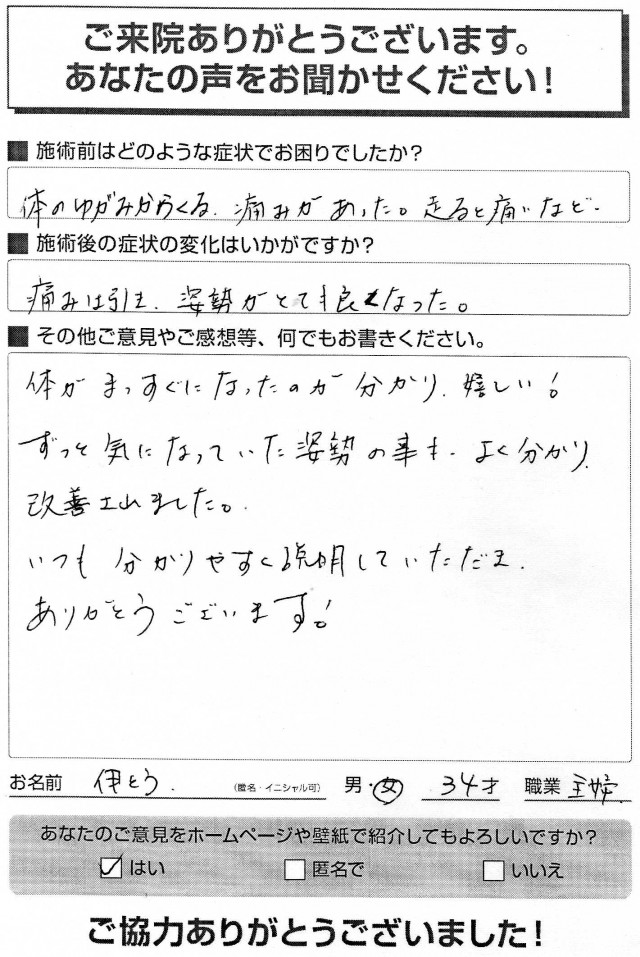 ご来院ありがとうございます。
あなたの声をお聞かせください!
■ 施術前はどのような症状でお困りでしたか?
体のゆがみからくる、痛みがあった。走ると痛いなど、
■ 施術後の症状の変化はいかがですか?
痛みは引き、姿勢がとても良くなった。
■ その他ご意見やご感想等、何でもお書きください。
体がまっすぐになったのが分かり、嬉しい!
ずっと気になっていた姿勢の事も、よく分かり、
改善されました。
いつも分かりやすく説明していただき、
ありがとうございます!
お名前 伊とう. (匿名・イニシャル可) 男・女 34才 職業 主婦.
あなたのご意見をホームページや壁紙で紹介してもよろしいですか?
☑ はい □ 匿名で □ いいえ
ご協力ありがとうございました!